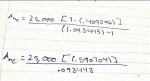 Anc = 25,000 [1 - (.4092961)]
(1.093443) - 1
Anc = 25,000 [(.5907041)]
.093443